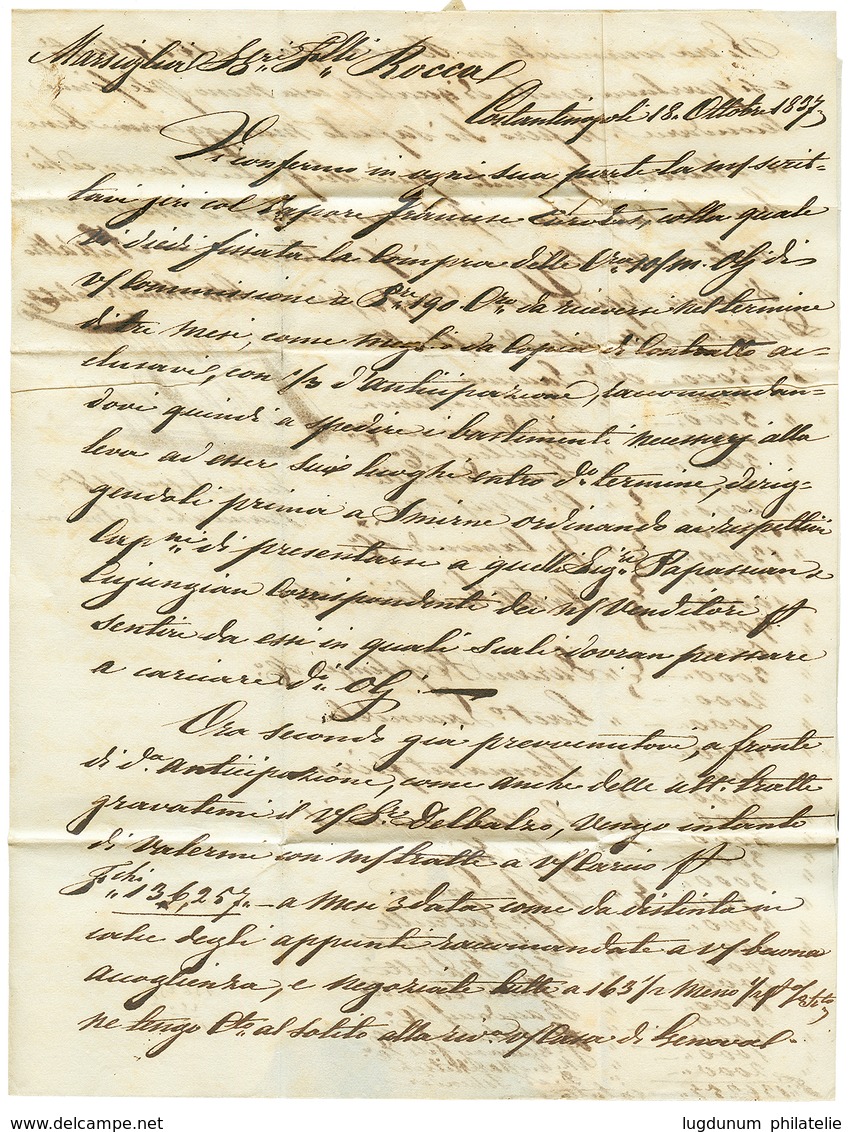 Marsiglia Sg.ri Flli Rocca
Costantinopoli 18. Ottobre 1837
Vi confermo in ogni sua parte la m/ scrit-
tavi jeri col Vapore francese colla quale
vi diedi fissata la Compra delle Orne 10/m. Olj di
v/ Commissione a P.re 190 Orna da riceversi nel termine
di tre mesi, come meglio da Copia di Contratto ac-
clusavi, con 1/3 d'anticipazione, raccomandan-
dovi quindi a spedire i bastimenti necessarj alla
leva ad esser sui luoghi entro d.o termine, dirig-
gendoli prima a Smirne ordinando ai rispettivi
Cap.ni di presentarsi a quelli Sig.ri Papassian e
Cujungian Corrispondenti dei v/ Venditori p
sentire da essi in quali Scali dovran passare
a caricare d.i Olj.
Ora secondo già prevvenutovi, a fronte
di d.a anticipazione, come anche delle alt.e tratte
gravatemi il v/ S.r Delbalzo, vengo intanto
di valermi con m/ tratte a v/ Carico p
F.chi 136,257. a mesi 3 data come da distinta in
calce degli appunti raccomandate a v/ buona
accoglienza, e negoziate tutte a 163 1/2 meno 1/2 p %
ne tengo Cto. al solito alla riv.a v/ Casa di Genova.
lugdunum philatelie